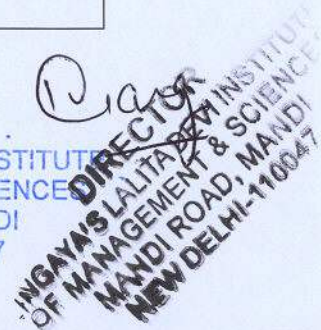 STITUTE
ENCES
DI
7
DIRECTOR
INGAYA'S LALITA DEVI INSTITUT
OF MANAGEMENT & SCIENCE
MANDI ROAD, MANDI
NEW DELHI-110047